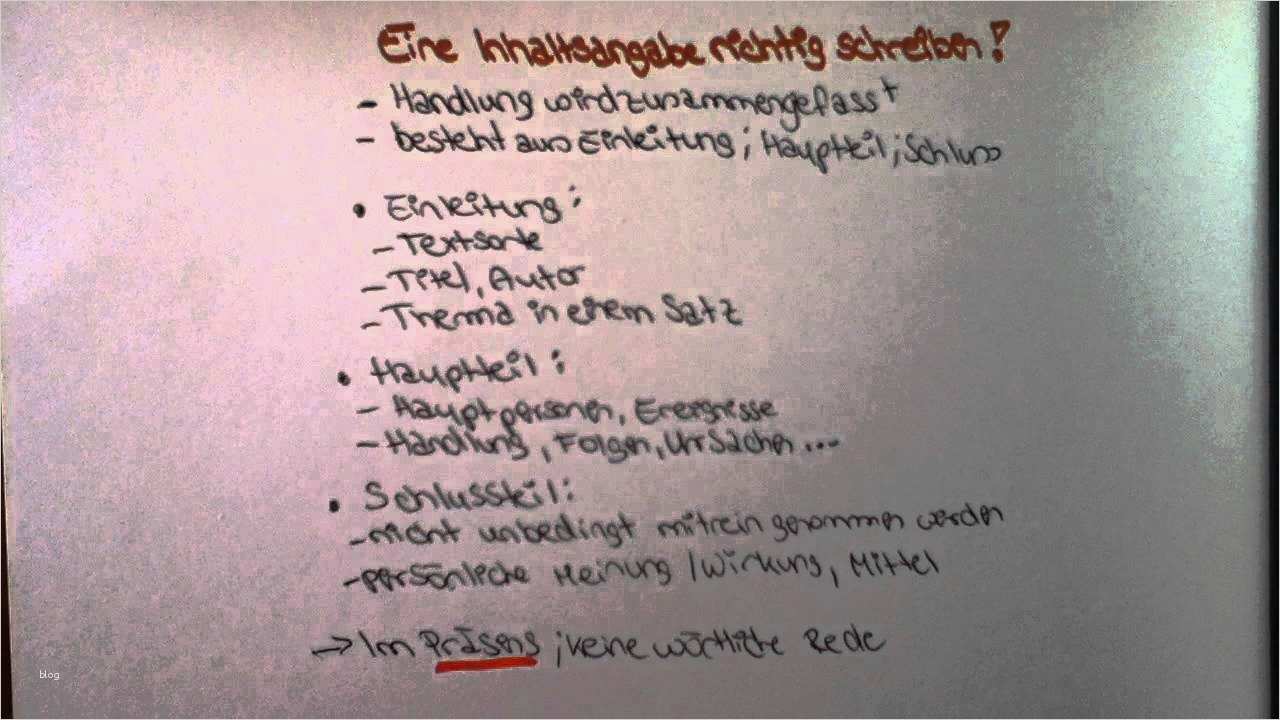 Eine Inhaltsangabe richtig schreiben!
- Handlung wird zusammengefasst
- besteht aus Einleitung; Hauptteil; Schluss
• Einleitung:
- Textsorte
- Titel, Autor
- Thema in einem Satz
• Hauptteil:
- Hauptpersonen, Ereignisse
- Handlung, Folgen, Ursachen ...
• Schlussteil:
- nicht unbedingt mitrein genommen werden
- persönliche Meinung / Wirkung, Mittel
→ Im Präsens; keine wörtliche Rede
blog